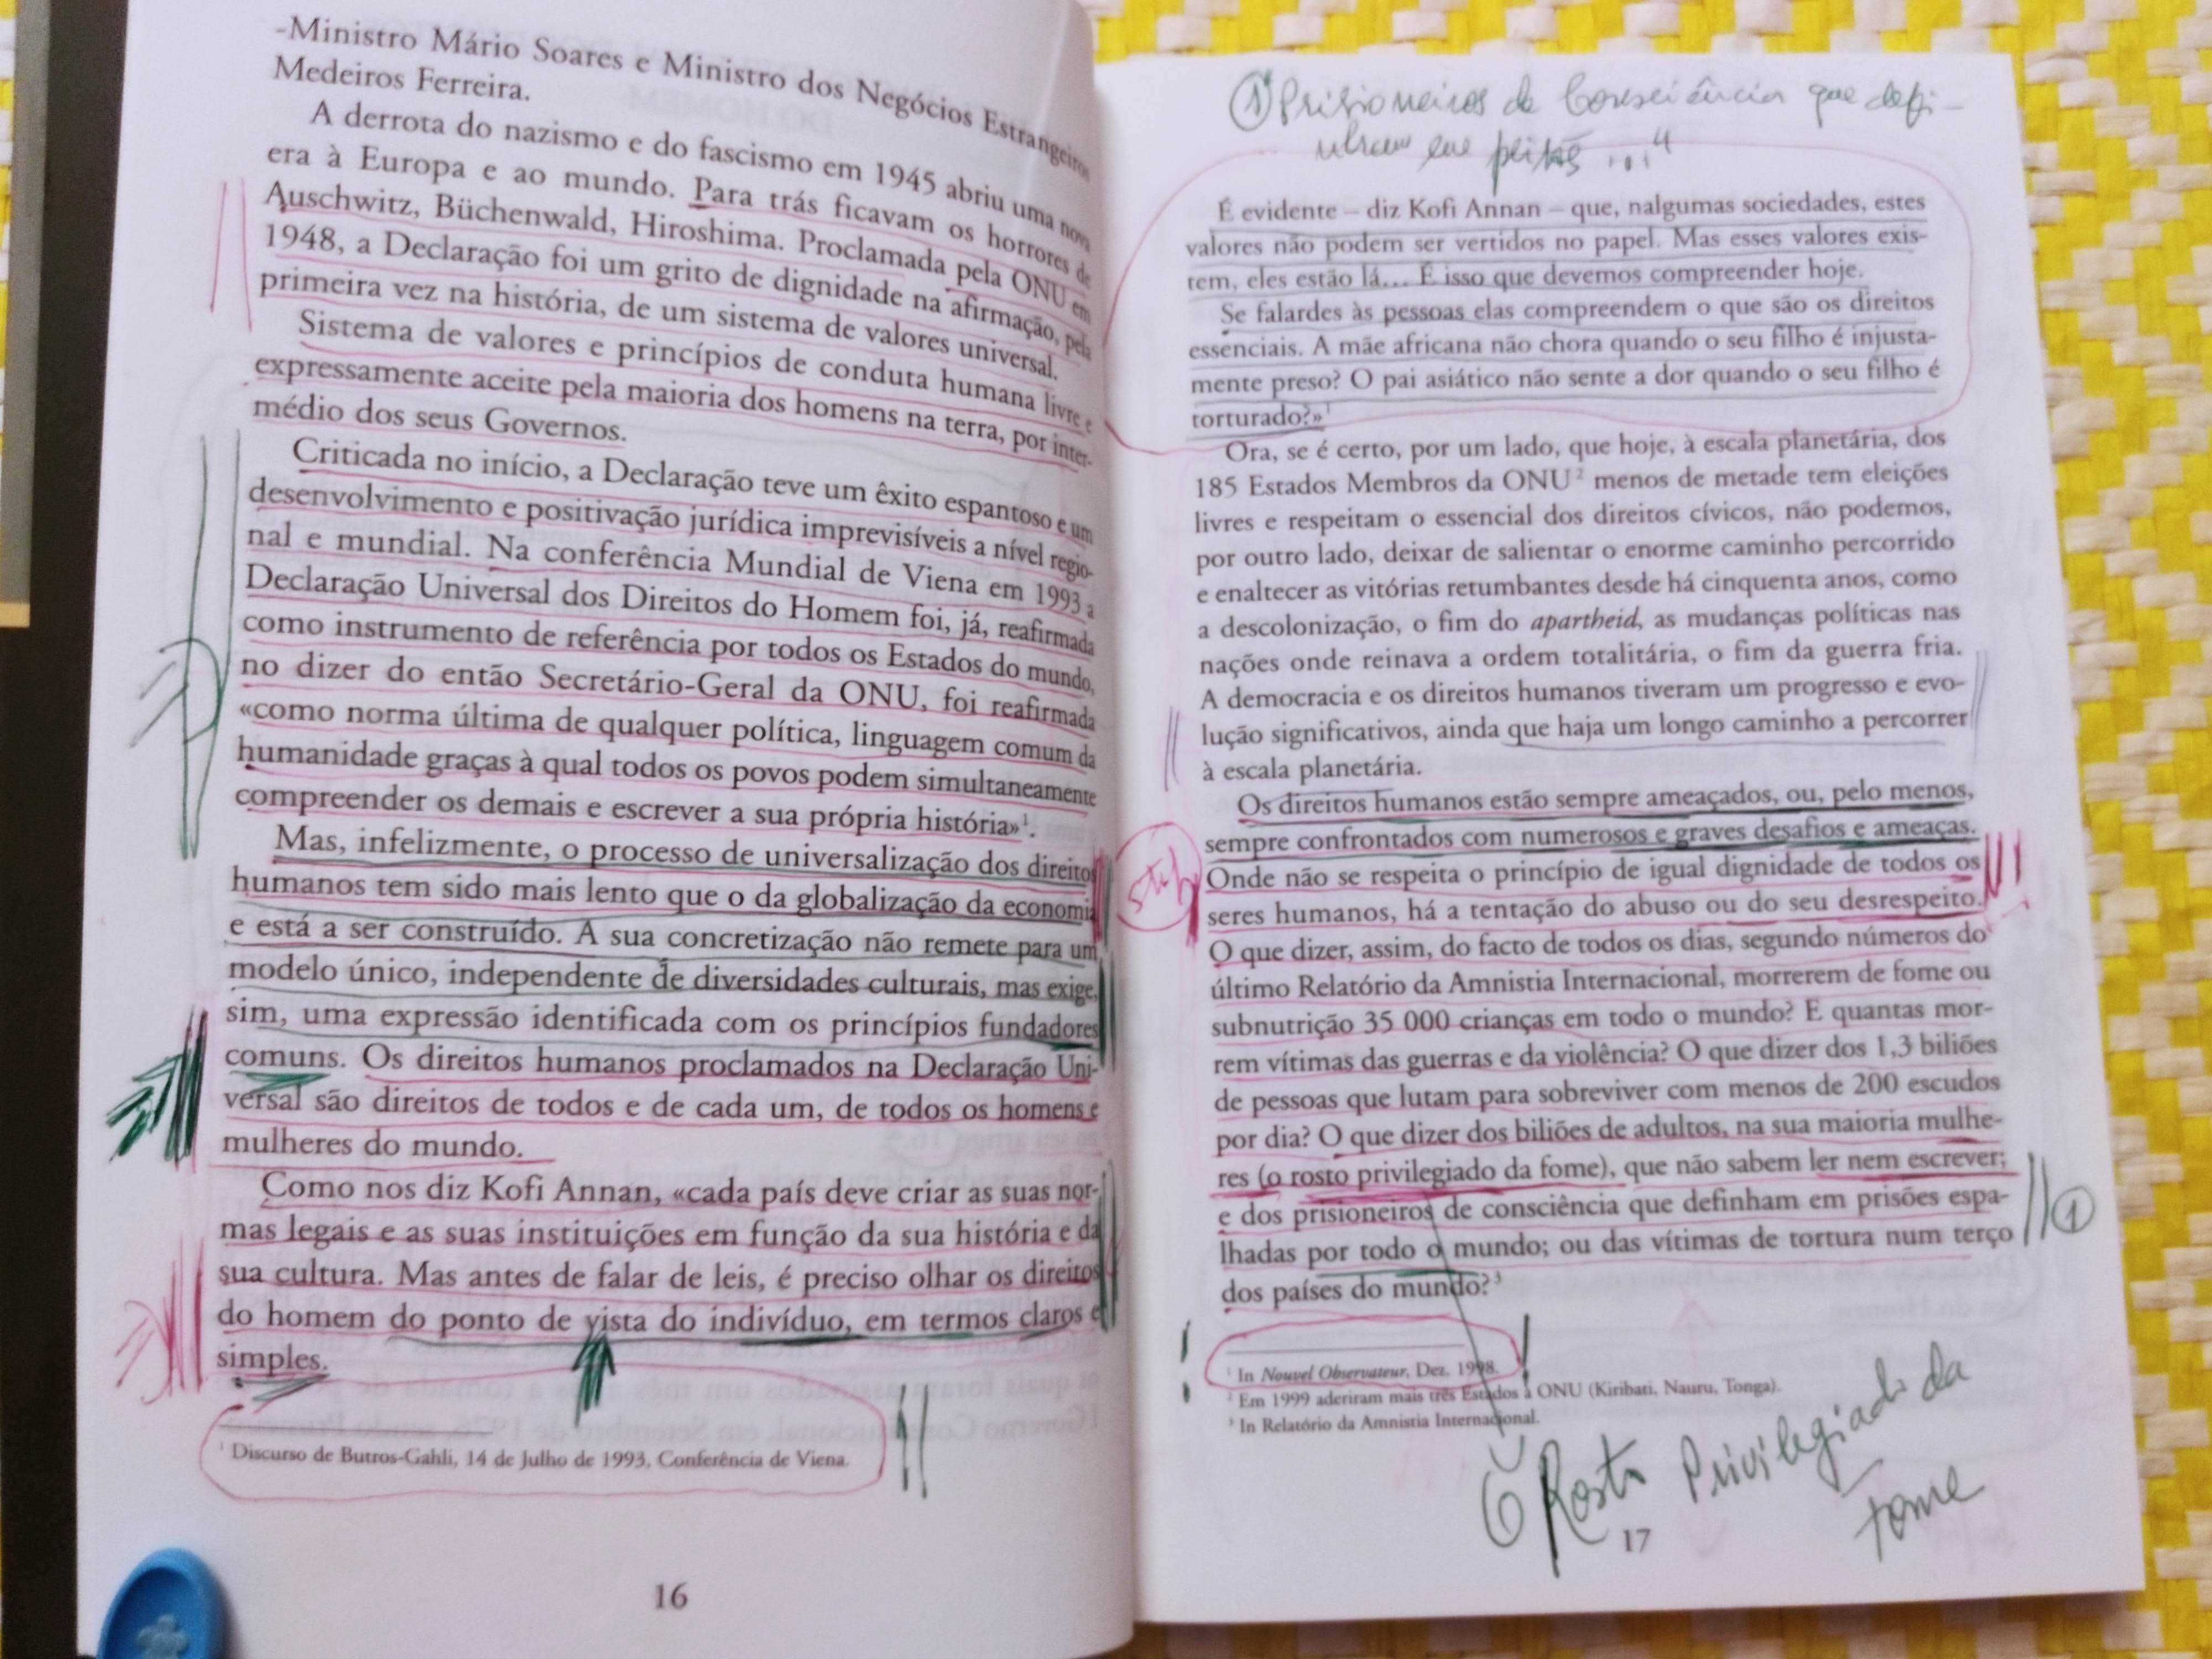 -Ministro Mário Soares e Ministro dos Negócios Estrangeiros
Medeiros Ferreira.
A derrota do nazismo e do fascismo em 1945 abriu uma nova
era à Europa e ao mundo. Para trás ficavam os horrores de
Auschwitz, Büchenwald, Hiroshima. Proclamada pela ONU em
1948, a Declaração foi um grito de dignidade na afirmação, pela
primeira vez na história, de um sistema de valores universal.
Sistema de valores e princípios de conduta humana livre e
expressamente aceite pela maioria dos homens na terra, por inter-
médio dos seus Governos.
Criticada no início, a Declaração teve um êxito espantoso e um
desenvolvimento e positivação jurídica imprevisíveis a nível regio-
nal e mundial. Na conferência Mundial de Viena em 1993 a
Declaração Universal dos Direitos do Homem foi, já, reafirmada
como instrumento de referência por todos os Estados do mundo,
no dizer do então Secretário-Geral da ONU, foi reafirmada
«como norma última de qualquer política, linguagem comum da
humanidade graças à qual todos os povos podem simultaneamente
compreender os demais e escrever a sua própria história»¹.
Mas, infelizmente, o processo de universalização dos direitos
humanos tem sido mais lento que o da globalização da economia
e está a ser construído. A sua concretização não remete para um
modelo único, independente de diversidades culturais, mas exige,
sim, uma expressão identificada com os princípios fundadores
comuns. Os direitos humanos proclamados na Declaração Uni-
versal são direitos de todos e de cada um, de todos os homens e
mulheres do mundo.
Como nos diz Kofi Annan, «cada país deve criar as suas nor-
mas legais e as suas instituições em função da sua história e da
sua cultura. Mas antes de falar de leis, é preciso olhar os direitos
do homem do ponto de vista do indivíduo, em termos claros e
simples.
¹ Discurso de Butros-Gahli, 14 de Julho de 1993, Conferência de Viena.
16
① Prisioneiros de Consciência que defi-
nham em
É evidente – diz Kofi Annan – que, nalgumas sociedades, estes
valores não podem ser vertidos no papel. Mas esses valores exis-
tem, eles estão lá... É isso que devemos compreender hoje.
Se falardes às pessoas elas compreendem o que são os direitos
essenciais. A mãe africana não chora quando o seu filho é injusta-
mente preso? O pai asiático não sente a dor quando o seu filho é
torturado?»¹
Ora, se é certo, por um lado, que hoje, à escala planetária, dos
185 Estados Membros da ONU² menos de metade tem eleições
livres e respeitam o essencial dos direitos cívicos, não podemos,
por outro lado, deixar de salientar o enorme caminho percorrido
e enaltecer as vitórias retumbantes desde há cinquenta anos, como
a descolonização, o fim do apartheid, as mudanças políticas nas
nações onde reinava a ordem totalitária, o fim da guerra fria.
A democracia e os direitos humanos tiveram um progresso e evo-
lução significativos, ainda que haja um longo caminho a percorrer
à escala planetária.
Os direitos humanos estão sempre ameaçados, ou, pelo menos,
sempre confrontados com numerosos e graves desafios e ameaças.
Onde não se respeita o princípio de igual dignidade de todos os
seres humanos, há a tentação do abuso ou do seu desrespeito.
O que dizer, assim, do facto de todos os dias, segundo números do
último Relatório da Amnistia Internacional, morrerem de fome ou
subnutrição 35 000 crianças em todo o mundo? E quantas mor-
rem vítimas das guerras e da violência? O que dizer dos 1,3 biliões
de pessoas que lutam para sobreviver com menos de 200 escudos
por dia? O que dizer dos biliões de adultos, na sua maioria mulhe-
res (o rosto privilegiado da fome), que não sabem ler nem escrever;
e dos prisioneiros de consciência que definham em prisões espa-
lhadas por todo o mundo; ou das vítimas de tortura num terço
dos países do mundo?³
①
¹ In Nouvel Observateur, Dez, 1998.
² Em 1999 aderiram mais três Estados à ONU (Kiribati, Nauru, Tonga).
³ In Relatório da Amnistia Internacional.
O Rosto Privilegiado da
fome
17